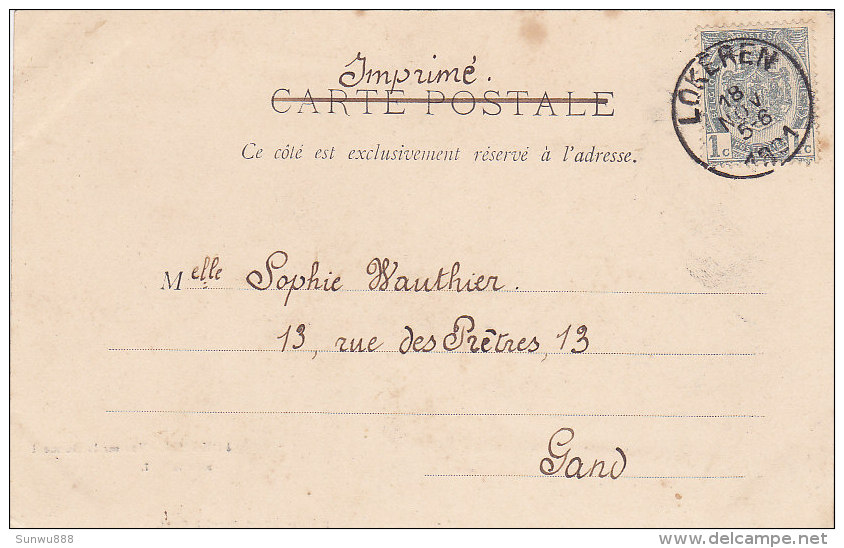 Imprimé.
CARTE POSTALE
Ce côté est exclusivement réservé à l'adresse.
POSTES
LOKEREN
18
NOV
5-6
1901
1c 1c
Melle Sophie Wauthier.
13, rue des Prêtres, 13
Gand
Sunwu888
delcampe.net